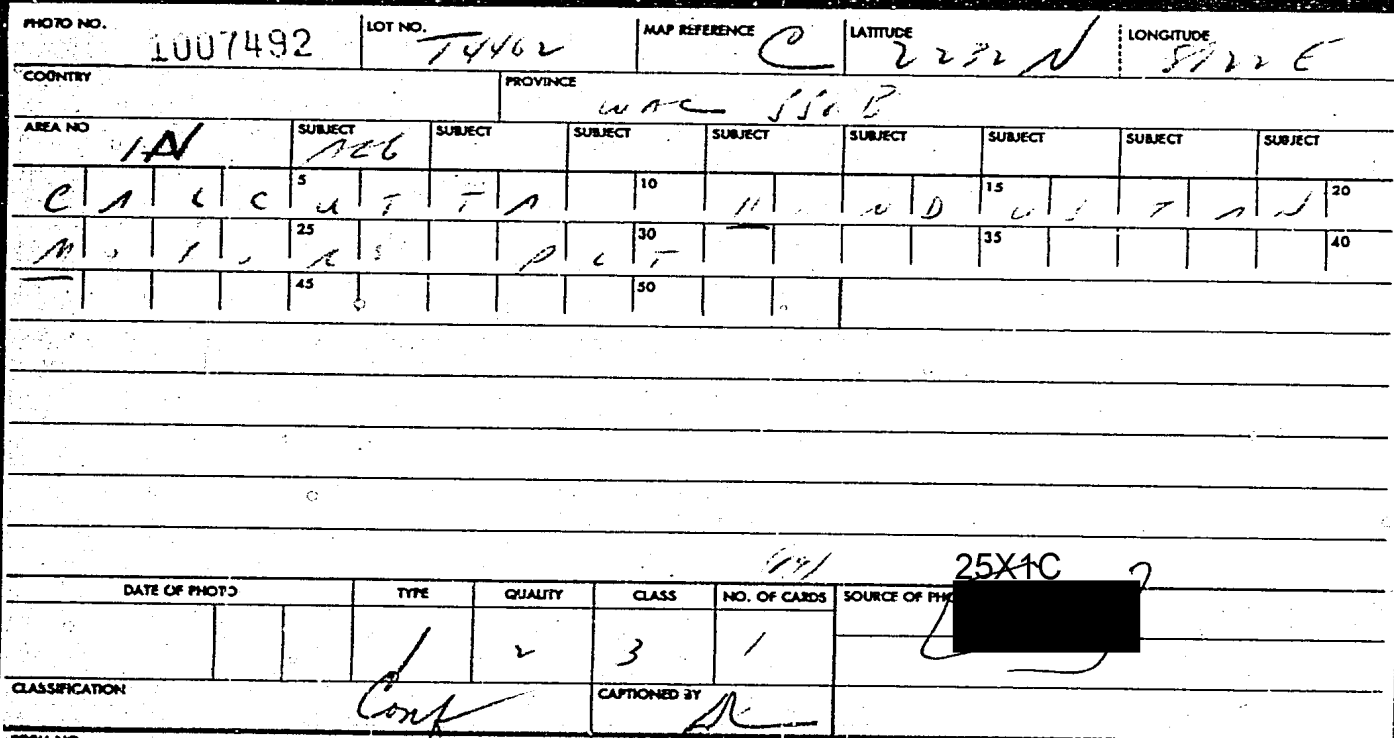 PHOTO NO. 1007492 LOT NO. T4462 MAP REFERENCE C LATITUDE 2232 N LONGITUDE E
COUNTRY PROVINCE WAC
AREA NO IN SUBJECT SUBJECT SUBJECT SUBJECT SUBJECT SUBJECT SUBJECT SUBJECT
CALCUTTA HINDUSTAN 5 10 15 20
PLT 25 30 35 40
45 50
25X1C
DATE OF PHOTO TYPE QUALITY CLASS NO. OF CARDS SOURCE OF
1 2 3 1
CLASSIFICATION Conf CAPTIONED BY